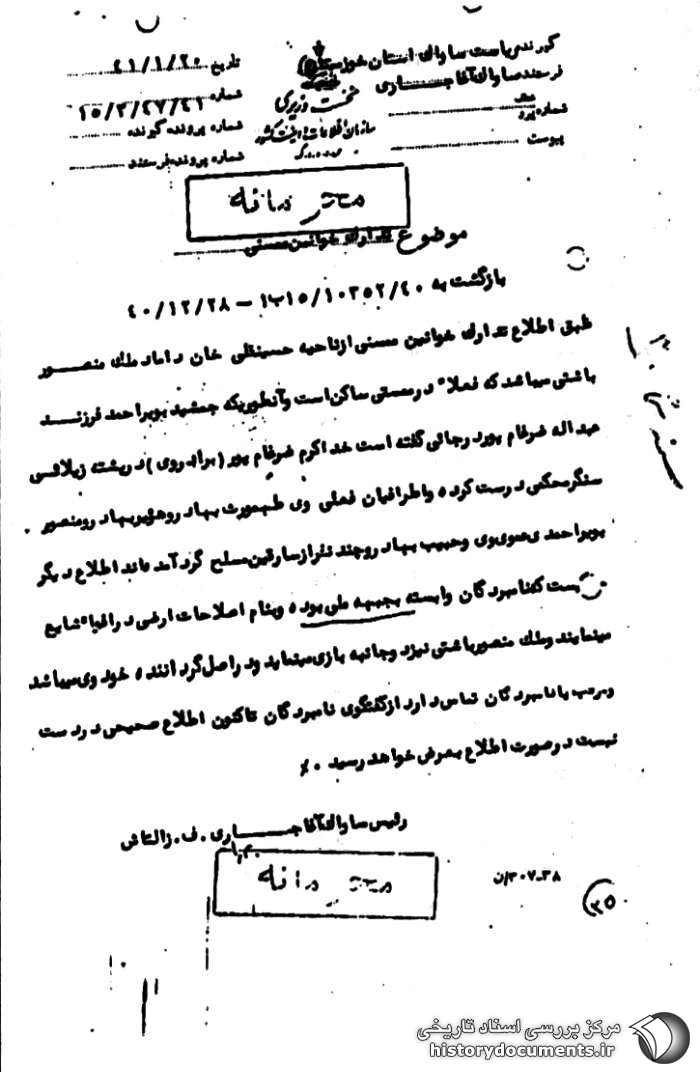 گیرنده ریاست ساواک استان خوزستان
فرستنده ساواک آغاجاری
نخست وزیری
سازمان اطلاعات و امنیت کشور
تاریخ ۴۱/۱/۲۰
شماره ۱۵/۳/۴۷/۴۱
شماره پرونده گیرنده
شماره پرونده فرستنده
شماره
پیوست
محرمانه
موضوع تدارک خوانین ممسنی
بازگشت به ۱۵/۱۰۳۵۲/۴۰ – ۴۰/۱۲/۲۸
طبق اطلاع تدارک خوانین ممسنی از ناحیه حسینقلی خان داماد ملک منصور
باشتی میباشد که فعلا" در ممسنی ساکن است و آنطوریکه جمشید بویراحمد فرزند
عبداله ضرغام پور در جائی گفته است خداکرم ضرغام پور (برادر وی) در پشته زیلائی
سنگر محکمی درست کرده و اطرافیان فعلی وی طهمورث بهادر و هژیر بهادر و منصور
بویراحمدی عموی وی و حبیب بهادر و چند نفر از سارقین مسلح گرد آمده اند اطلاع دیگر
نامبردگان وابسته بجبهه ملی بوده و بنام اصلاحات ارضی در افواه شایع
مینمایند و ملک منصور باشتی نیز دو جانبه بازی مینماید و در اصل گرداننده خود وی میباشد
و مرتب با نامبردگان تماس دارد از گفتگوی نامبردگان تاکنون اطلاع صحیحی در دست
نیست در صورت اطلاع بعرض خواهد رسید ۰٪
رئیس ساواک آغاجاری . ف . زالتاش
محرمانه
۳۸-۳۰۷/ن
۲۵
مرکز بررسی اسناد تاریخی
historydocuments.ir